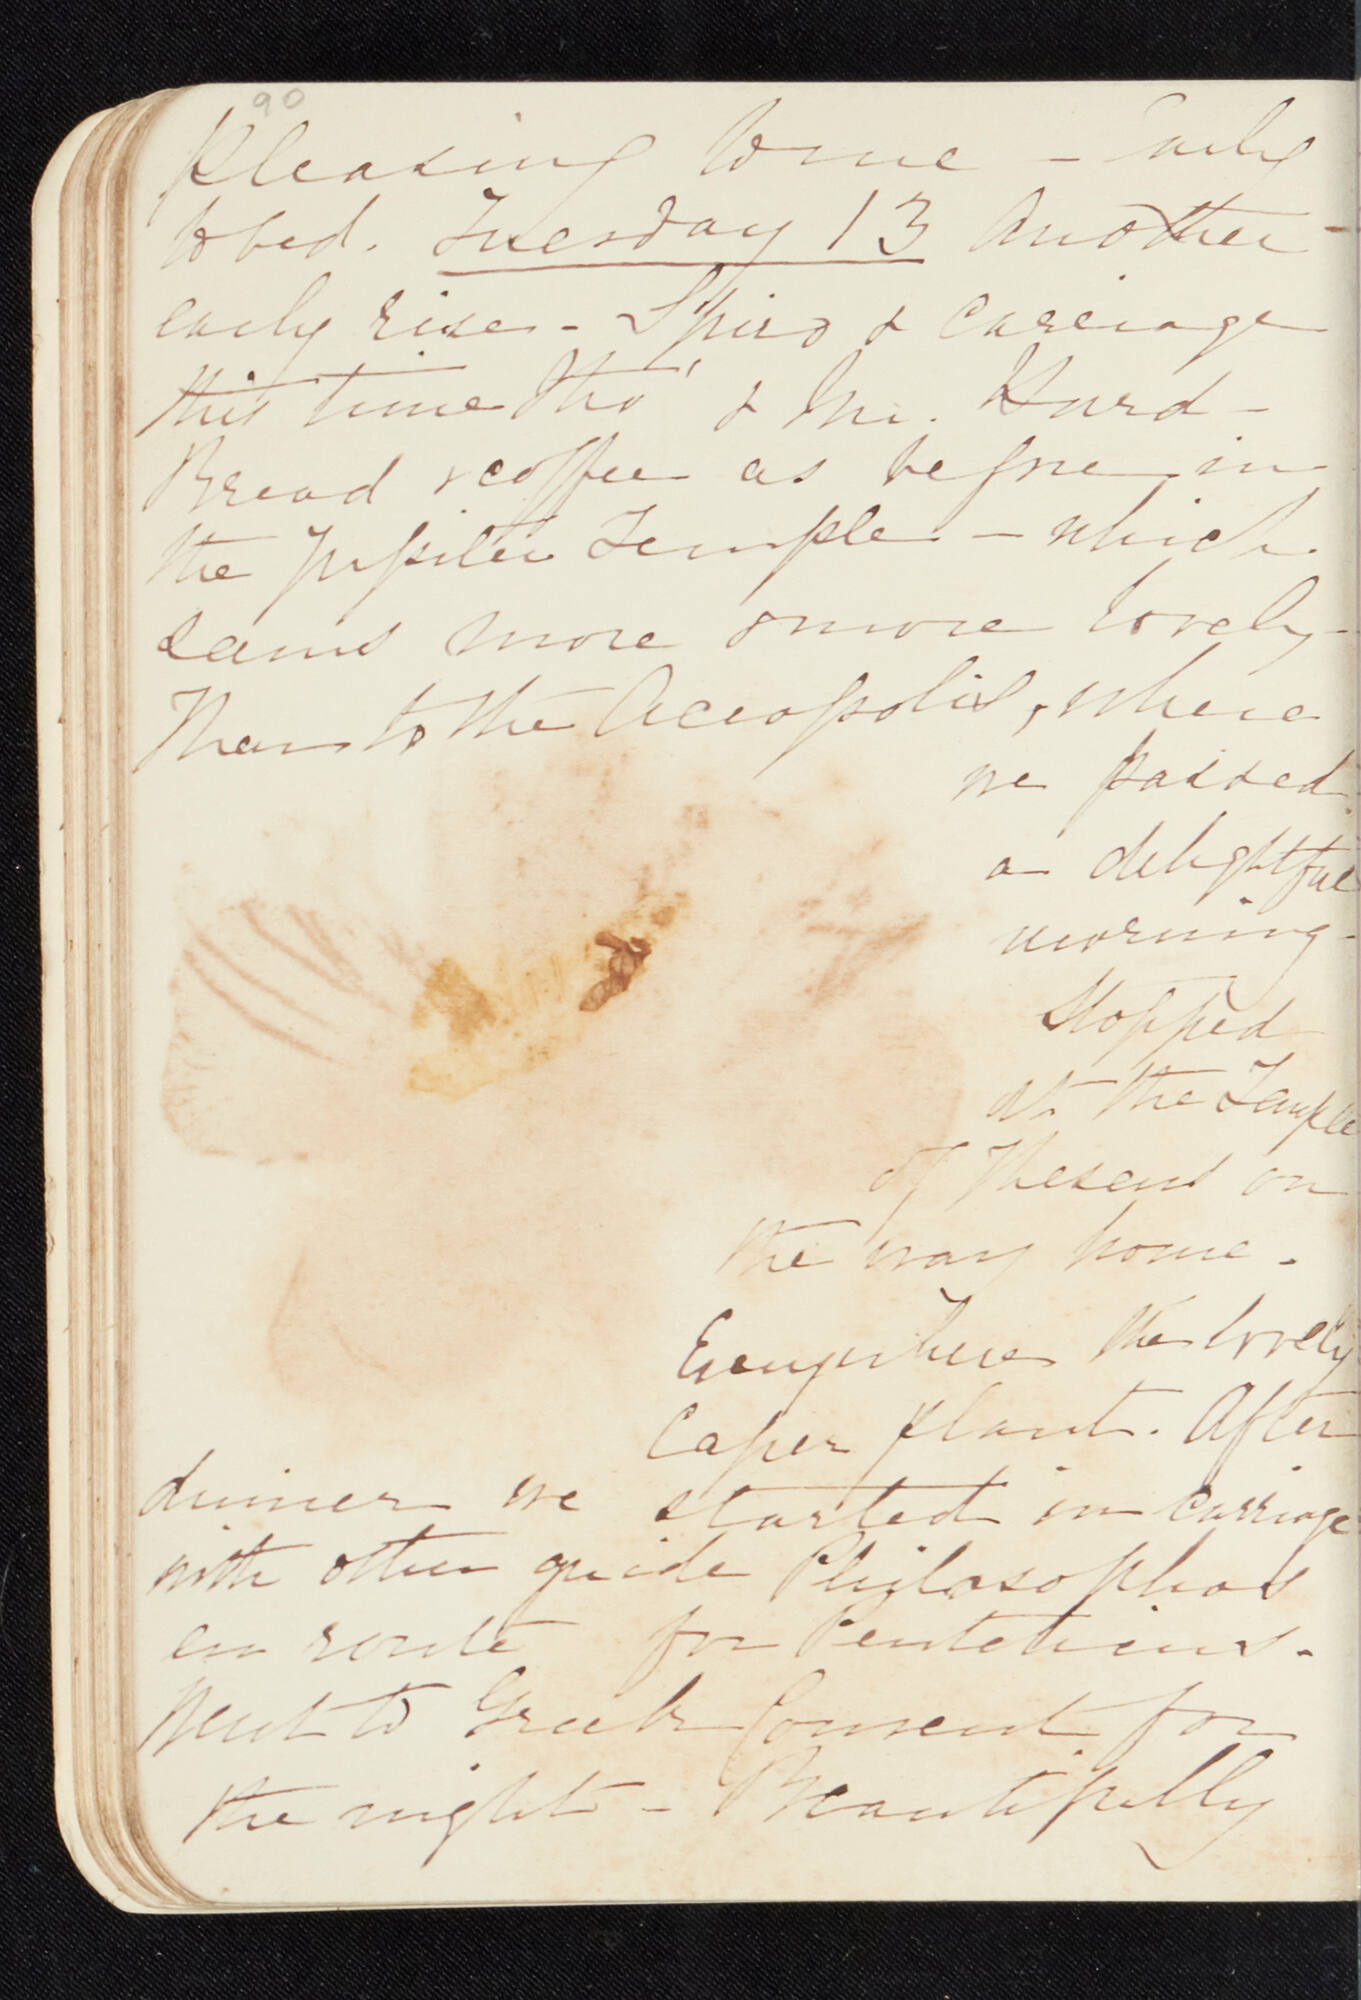 90
pleasing to me - Early
to bed. Tuesday 13 Another
early rise - Spiro & carriage
this time tho' & Mr. Hurd -
Bread & coffee as before in
the Jupiter Temple - which
seems more & more lovely -
Then to the Acropolis, where
we passed
a delightful
morning -
Stopped
at the Temple
of Theseus on
the way home.
Everywhere the lovely
Caper plant. After
dinner we started in carriage
with other guide Philosophos
en route for Pentelicus.
Went to Greek Convent for
the night - Beautifully